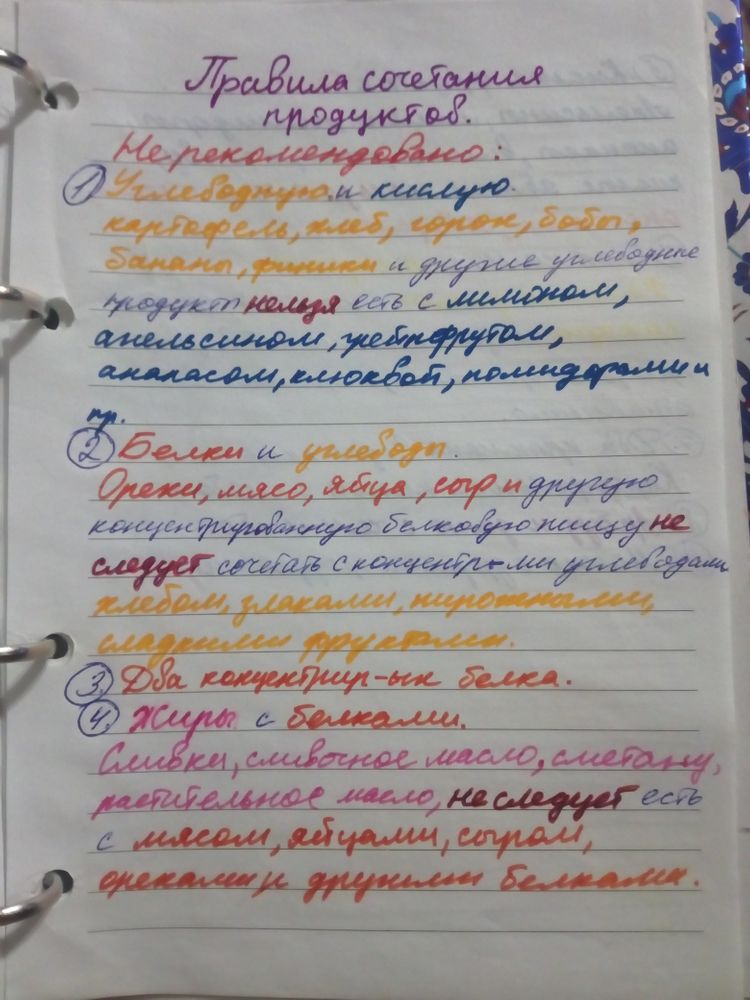 Правила сочетания
продуктов.
Не рекомендовано:
1 Углеводную и кислую.
картофель, хлеб, горох, бобы,
бананы, финики и другие углеводные
продукты нельзя есть с лимоном,
апельсином, грейпфрутом,
ананасом, клюквой, помидорами и
пр.
2 Белки и углеводы.
Орехи, мясо, яйца, сыр и другую
концентрированную белковую пищу не
следует сочетать с концентр-ми углеводами
хлебом, злаками, пирожными,
сладкими фруктами.
3. Два концентрир-ых белка.
4. Жиры с белками.
Сливки, сливочное масло, сметану,
растительное масло, не следует есть
с мясом, яйцами, сыром,
орехами и другими белками.